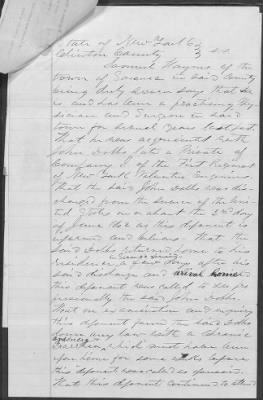 State of New York
Clinton County } SS.
Samuel Haynes of the
town of Saranac in said County
being duly sworn says that he
is and has been a practicing Phy-
sician and Surgeon in said
town for several years last past.
That he was acquainted with
John Dobbs late a Private of
Company I of the First Regiment
of New York Volunteer Engineers
that the said John Dobbs was dis-
charged from the service of the Uni-
ted States on or about the 3rd day
of June 186 as this deponent is
informed and believes that the
said Dobbs returned home to his
residence a few days after his
said discharge and
this deponent was called to see pro-
fessionally the said John Dobbs.
That on examination and inquiry
this deponent found the said Dobbs
very low with a Chronic
Diarrhea, which must have been
upon him for some weeks before
this deponent was called as
That this deponent continued to attend